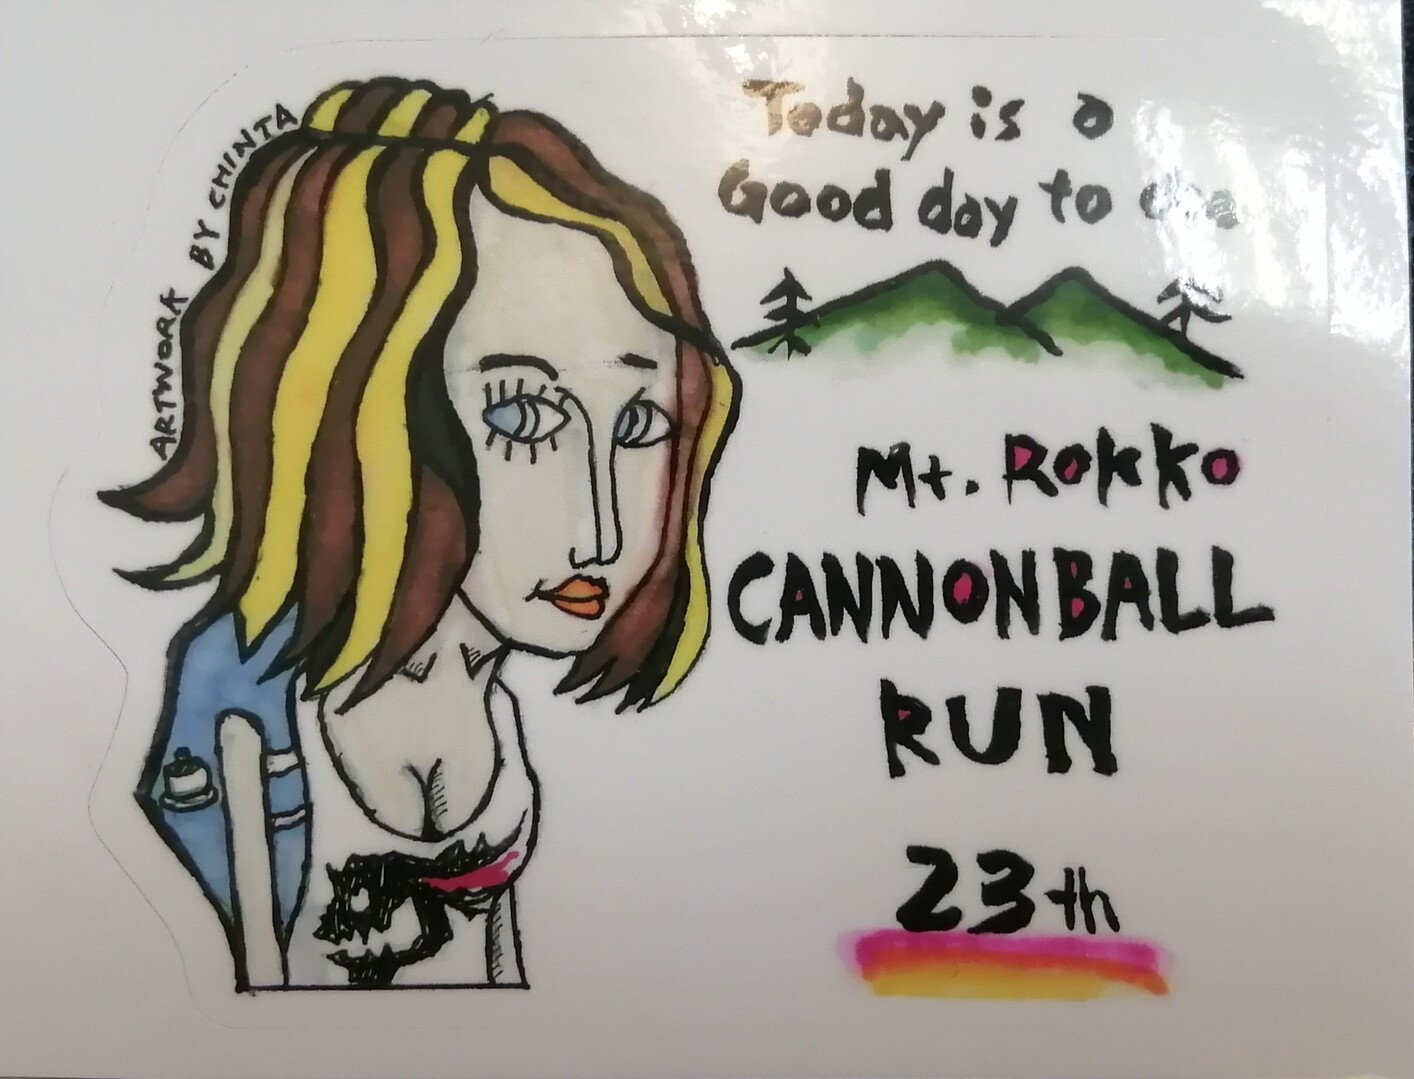 ARTWORK BY CHINTA
Today is a
Good day to
Mt. Rokko
CANNONBALL
RUN
23th